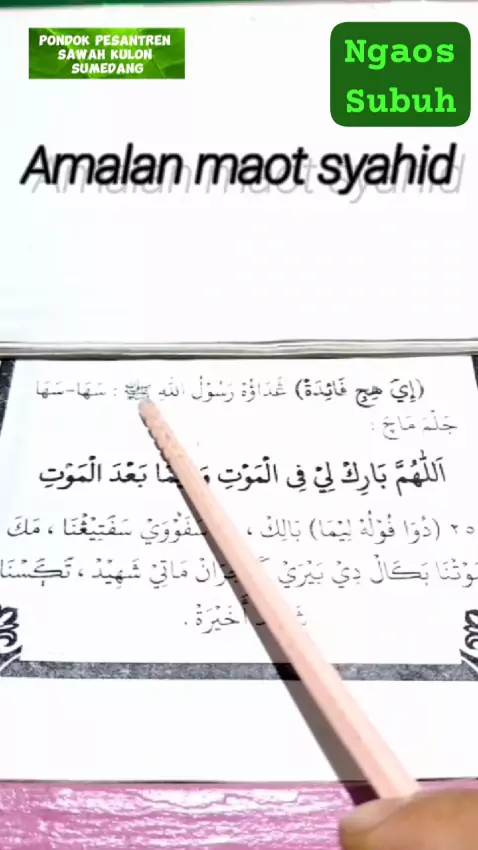 PONDOK PESANTREN
SAWAH KULON
SUMEDANG
Ngaos
Subuh
Amalan maot syahid
(إِيَ هِجِ فَائِدَةْ) ڠَدَاوُهْ رَسُوْلُ اللهِ ﷺ : سَهَا-سَهَا
جَلْمَ مَاچَ :
اَللّٰهُمَّ بَارِكْ لِيْ فِى الْمَوْتِ وَفِيْمَا بَعْدَ الْمَوْتِ
٢٥ (دُوَا ڤُوْلُهْ لِيْمَا) بَالِكْ ، سَڤَوْوَيْ سَڤَتِيْڠْنَا ، مَكَ
مَوْتْنَا بَكَالْ دِيْ بَيْرَيْ مَاتِيْ شَهِيْدْ ،
أَخَيْرَةْ .